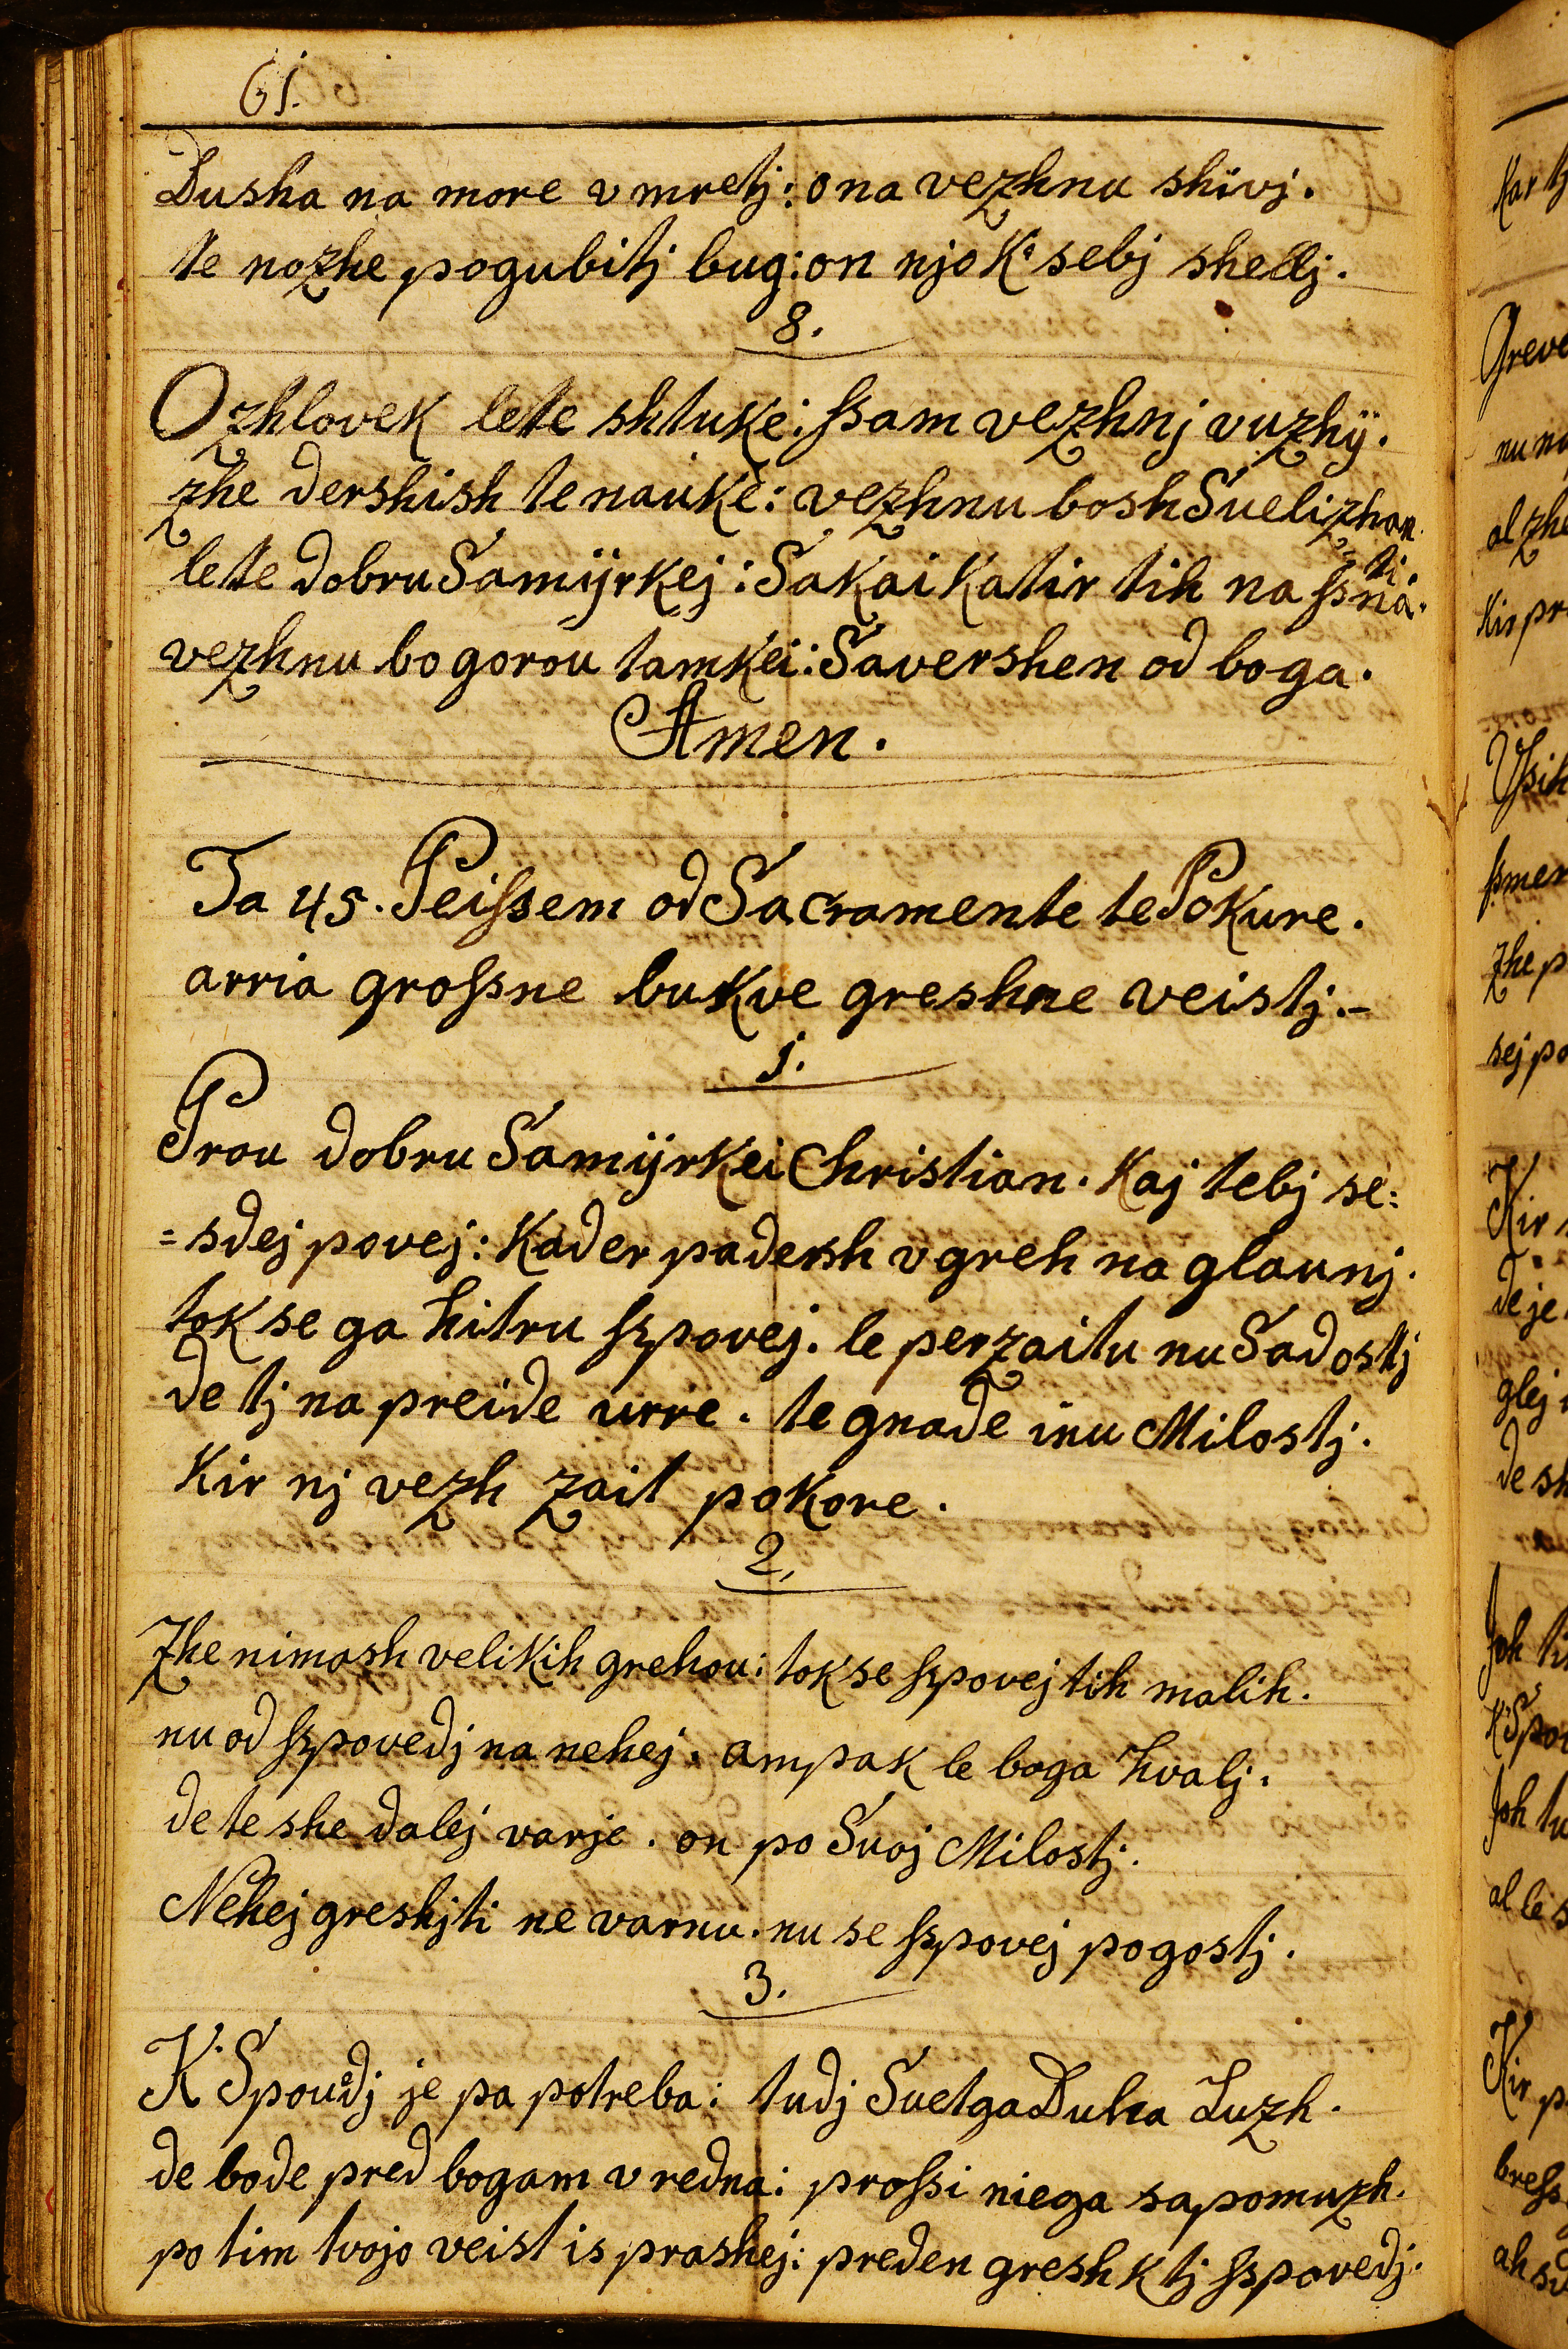 61.
Dusha na more vmretj: ona vezhnu shivj.
te nozhe pogubitj bug: on njo K' sebj shellj.
8.
Ozhlovek lete shtuke: ſsam vezhnj vuzhÿ.
zhe dershish te nauke: vezhnu bosh Svelizhan.
lete dobru Samÿrkej: Sakai Katir tih na ſsnati.
vezhnu bo gorou tamkei: Savershen od boga.
Amen.
Ta 45. Peiſsem od Sacramente te Pokure.
arria groſsne bukve greshne veistj.-
1.
Prou dobru Samÿrkei Christian. Kaj tebj se=
=sdej povej: Kader padersh v greh na glaunj.
tok se ga hitru ſzpovej. le perzaitu nu Sadostj
de tj na preide urre. te gnade inu Milostj.
Kir nj vezh zait pokore.
2.
Zhe nimash velikih grehou: tok se ſzpovej tih malih.
nu od ſzpovedj na nehej. ampak le boga hvalj.
de te she dalej varje. on po Svoj Milostj.
Nehej greshjti ne varnu. nu se ſzpovej pogostj.
3.
K' Spoudj je pa potreba: tudj Svetga Duha Luzh.
de bode pred bogam vredna: proſsi niega sapomuzh.
po tim tvojo veist is prashej: preden gresh k tj ſzpovedj.